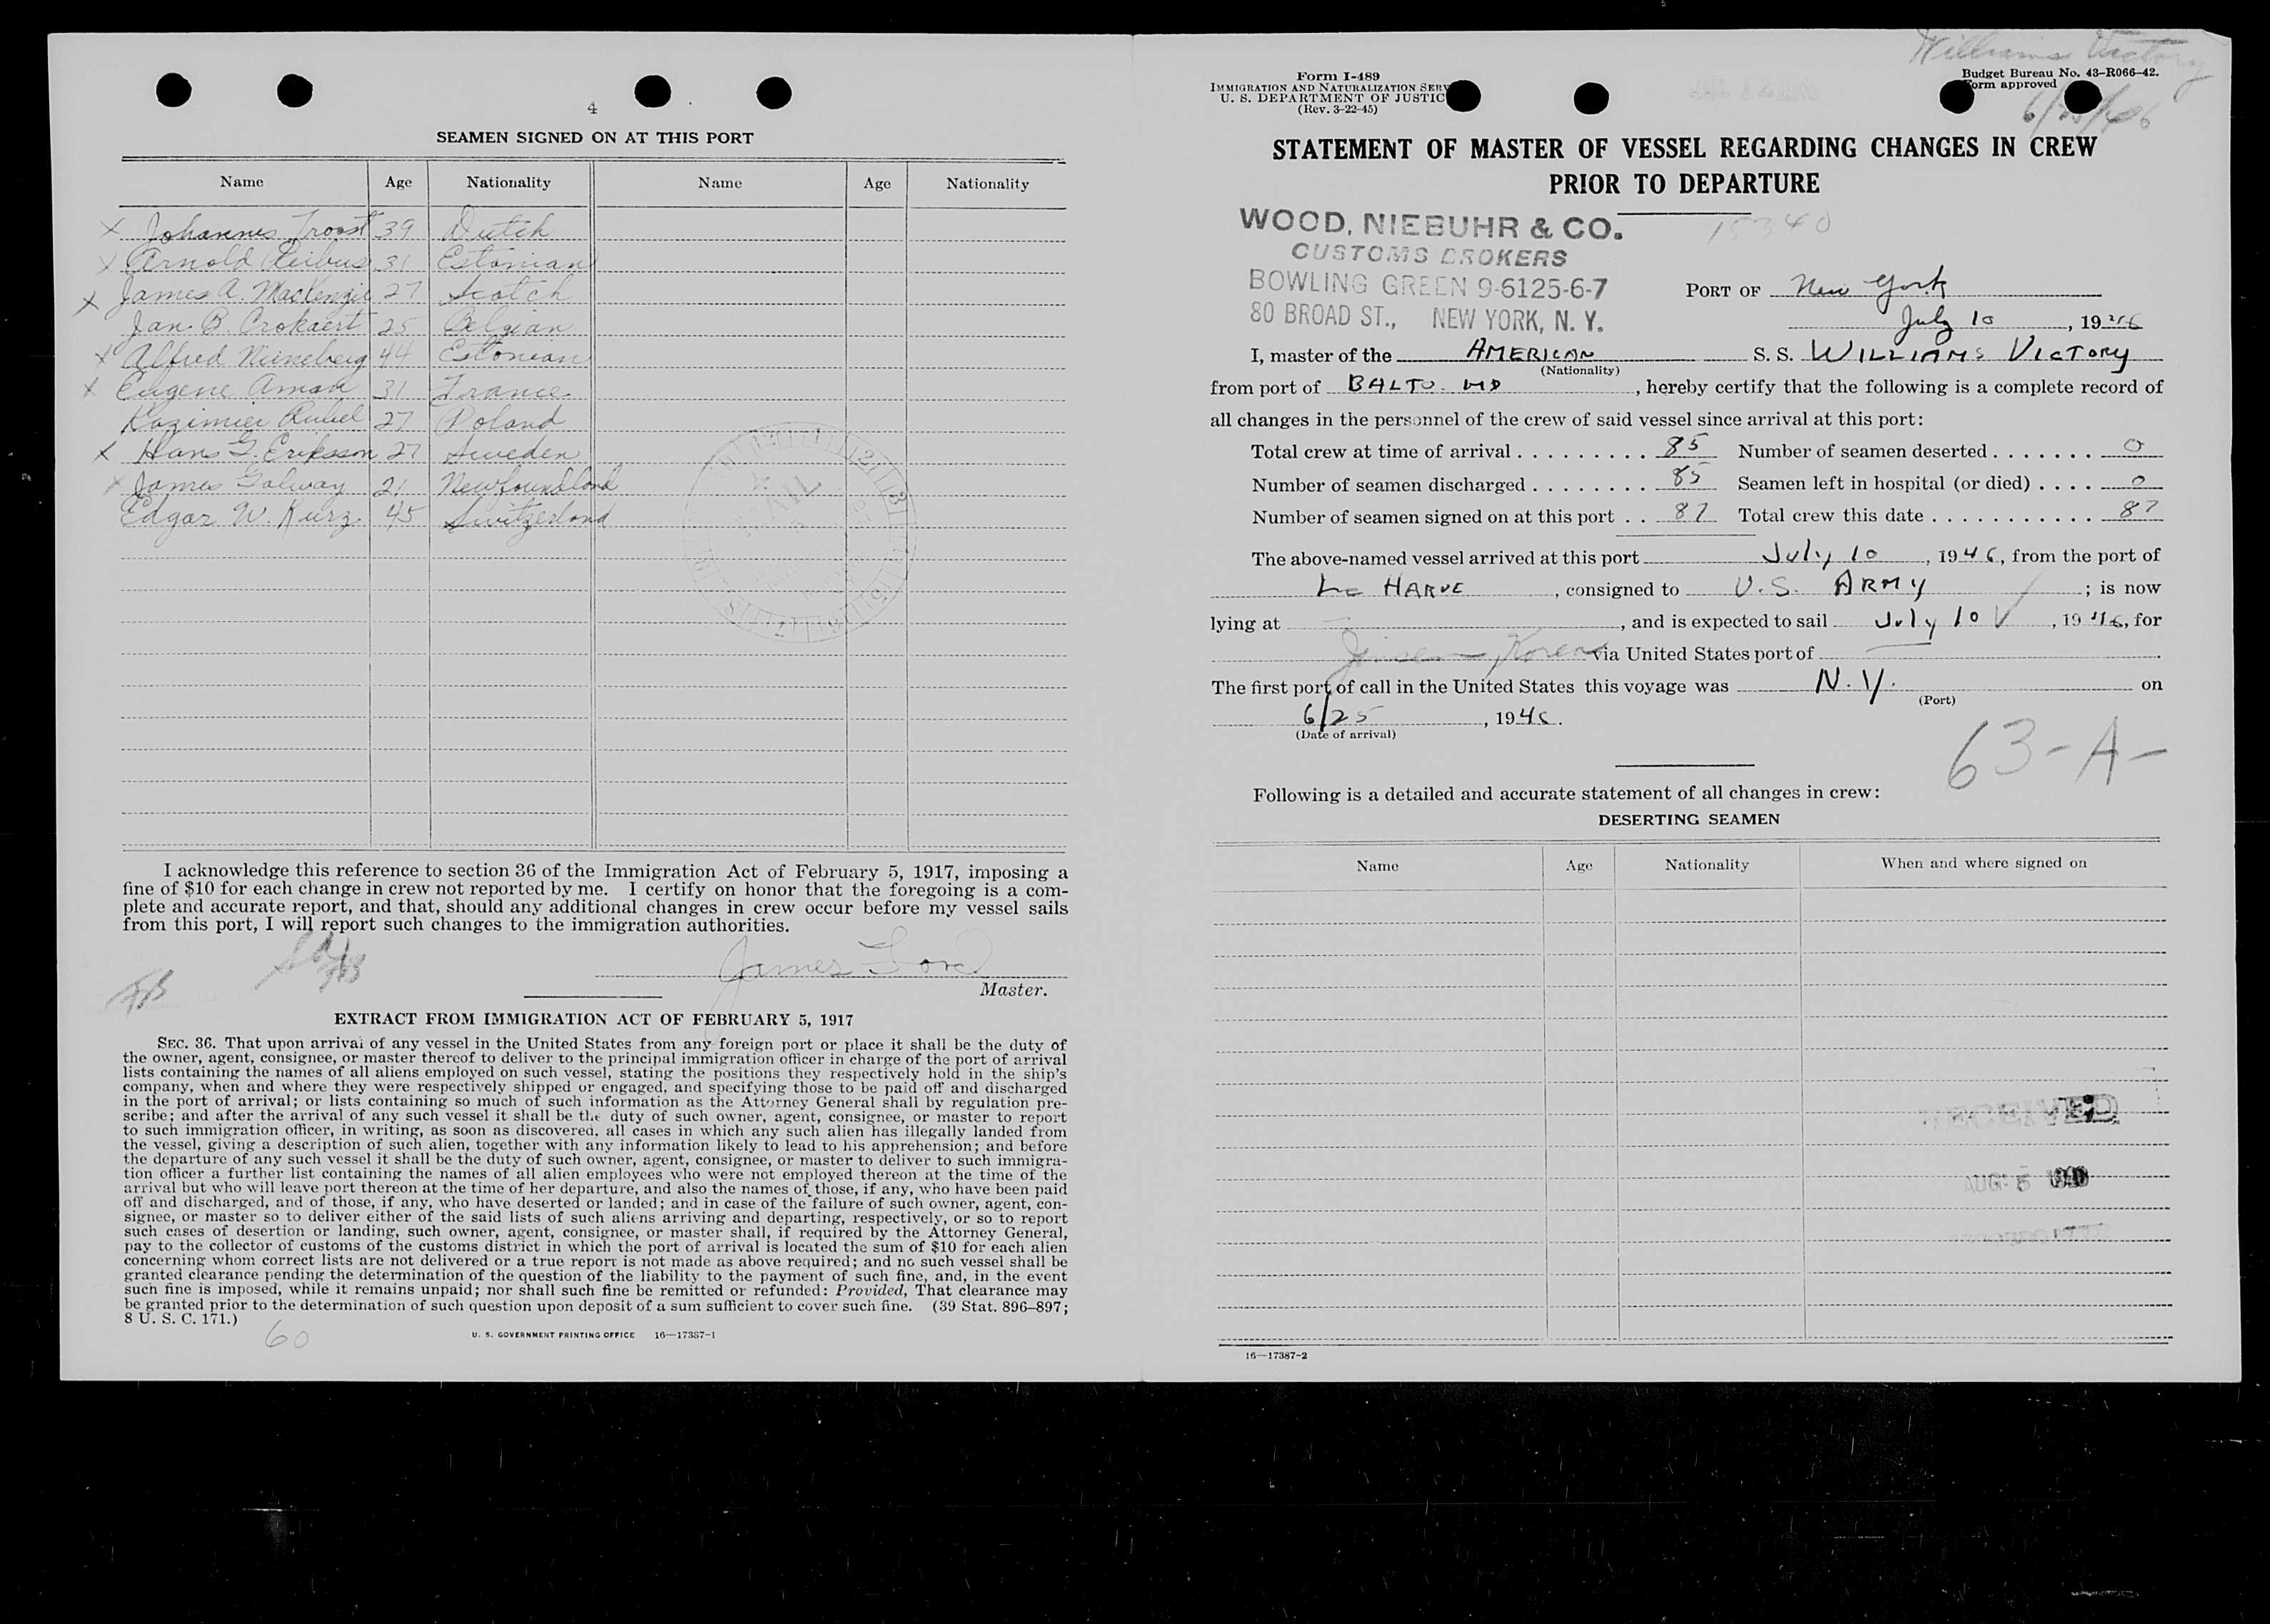 4
SEAMEN SIGNED ON AT THIS PORT
Name Age Nationality Name Age Nationality
X Johannes Troost 39 Dutch
X Arnold 31 Estonian
X James A. MacKenzie 27 Scotch
Jan B. Crokaert 25 Belgian
X Alfred 44 Estonian
X Eugene Aman 31 France
Kazimier 27 Poland
X Hans G. Eriksson 27 Sweden
X James Galway 21 Newfoundland
Edgar W. Kurz. 45 Switzerland
I acknowledge this reference to section 36 of the Immigration Act of February 5, 1917, imposing a
fine of $10 for each change in crew not reported by me. I certify on honor that the foregoing is a com-
plete and accurate report, and that, should any additional changes in crew occur before my vessel sails
from this port, I will report such changes to the immigration authorities.
James
Master.
EXTRACT FROM IMMIGRATION ACT OF FEBRUARY 5, 1917
SEC. 36. That upon arrival of any vessel in the United States from any foreign port or place it shall be the duty of
the owner, agent, consignee, or master thereof to deliver to the principal immigration officer in charge of the port of arrival
lists containing the names of all aliens employed on such vessel, stating the positions they respectively hold in the ship's
company, when and where they were respectively shipped or engaged, and specifying those to be paid off and discharged
in the port of arrival; or lists containing so much of such information as the Attorney General shall by regulation pre-
scribe; and after the arrival of any such vessel it shall be the duty of such owner, agent, consignee, or master to report
to such immigration officer, in writing, as soon as discovered, all cases in which any such alien has illegally landed from
the vessel, giving a description of such alien, together with any information likely to lead to his apprehension; and before
the departure of any such vessel it shall be the duty of such owner, agent, consignee, or master to deliver to such immigra-
tion officer a further list containing the names of all alien employees who were not employed thereon at the time of the
arrival but who will leave port thereon at the time of her departure, and also the names of those, if any, who have been paid
off and discharged, and of those, if any, who have deserted or landed; and in case of the failure of such owner, agent, con-
signee, or master so to deliver either of the said lists of such aliens arriving and departing, respectively, or so to report
such cases of desertion or landing, such owner, agent, consignee, or master shall, if required by the Attorney General,
pay to the collector of customs of the customs district in which the port of arrival is located the sum of $10 for each alien
concerning whom correct lists are not delivered or a true report is not made as above required; and no such vessel shall be
granted clearance pending the determination of the question of the liability to the payment of such fine, and, in the event
such fine is imposed, while it remains unpaid; nor shall such fine be remitted or refunded: Provided, That clearance may
be granted prior to the determination of such question upon deposit of a sum sufficient to cover such fine. (39 Stat. 896–897;
8 U. S. C. 171.)
60
U. S. GOVERNMENT PRINTING OFFICE 16—17387-1
Williams Victory
Form I-489
IMMIGRATION AND NATURALIZATION SERV
U. S. DEPARTMENT OF JUSTIC
(Rev. 3-22-45)
Budget Bureau No. 43-R066-42.
orm approved
6/25/46
STATEMENT OF MASTER OF VESSEL REGARDING CHANGES IN CREW
PRIOR TO DEPARTURE
WOOD, NIEBUHR & CO.
15340
CUSTOMS BROKERS
BOWLING GREEN 9-6125-6-7
80 BROAD ST., NEW YORK, N. Y.
PORT OF New York
July 10, 1946
I, master of the AMERICAN S. S. WILLIAMS VICTORY
(Nationality)
from port of BALTO. MD, hereby certify that the following is a complete record of
all changes in the personnel of the crew of said vessel since arrival at this port:
Total crew at time of arrival 85 Number of seamen deserted 0
Number of seamen discharged 85 Seamen left in hospital (or died) 0
Number of seamen signed on at this port 87 Total crew this date 87
The above-named vessel arrived at this port July 10, 1946, from the port of
Le HARVE, consigned to U.S. ARMY; is now
lying at , and is expected to sail July 10, 1946, for
Jinsen, Korea via United States port of
The first port of call in the United States this voyage was N.Y. on
(Port)
6/25, 1946.
(Date of arrival)
63-A-
Following is a detailed and accurate statement of all changes in crew:
DESERTING SEAMEN
Name Age Nationality When and where signed on
RECEIVED
AUG 5
16—17387-2